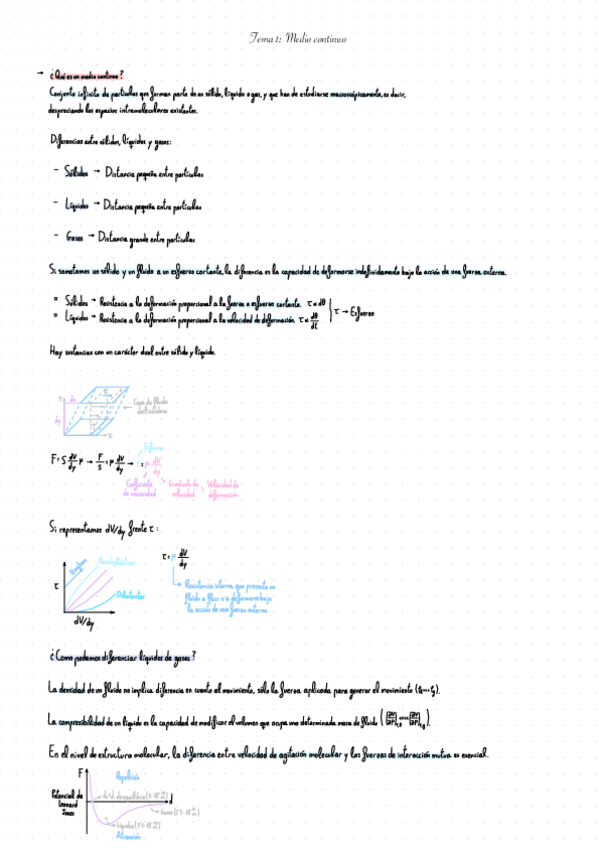 Tema 1: Medio continuo
→ ¿Qué es un medio continuo?
Conjunto infinito de partículas que forman parte de un sólido, líquido o gas, y que han de estudiarse macroscópicamente, es decir,
despreciando los espacios intramoleculares existentes.
Diferencias entre sólidos, líquidos y gases:
- Sólidos → Distancia pequeña entre partículas
- Líquidos → Distancia pequeña entre partículas
- Gases → Distancia grande entre partículas
Si sometemos un sólido y un fluido a un esfuerzo cortante, la diferencia es la capacidad de deformarse indefinidamente bajo la acción de una fuerza externa.
Sólidos → Resistencia a la deformación proporcional a la fuerza o esfuerzo cortante. τ ∝ dθ
Líquidos → Resistencia a la deformación proporcional a la velocidad de deformación. τ ∝ dθ/dt
τ → Esfuerzo
Hay sustancias con un carácter dual entre sólido y líquido.
dv
dy
Capa de fluido
Esfuerzo
F = S dV/dy μ → F/S = μ dV/dy →
Coeficiente de viscosidad
Gradiente de velocidad = Velocidad de deformación
Si representamos dV/dy frente τ:
τ
Dilatantes
dV/dy
τ = μ dV/dy
Resistencia interna que presenta un
fluido a fluir o a deformarse bajo
la acción de una fuerza externa
¿Como podemos diferenciar líquidos de gases?
La densidad de un fluido no implica diferencia en cuanto al movimiento, sólo la fuerza aplicada para generar el movimiento
La compresibilidad de un líquido es la capacidad de modificar el volumen que ocupa una determinada masa de fluido
En el nivel de estructura molecular, la diferencia entre velocidad de agitación molecular y las fuerzas de interacción mutua es esencial.
F
Repulsión
Potencial de
Leonard
Jones
d
Atracción